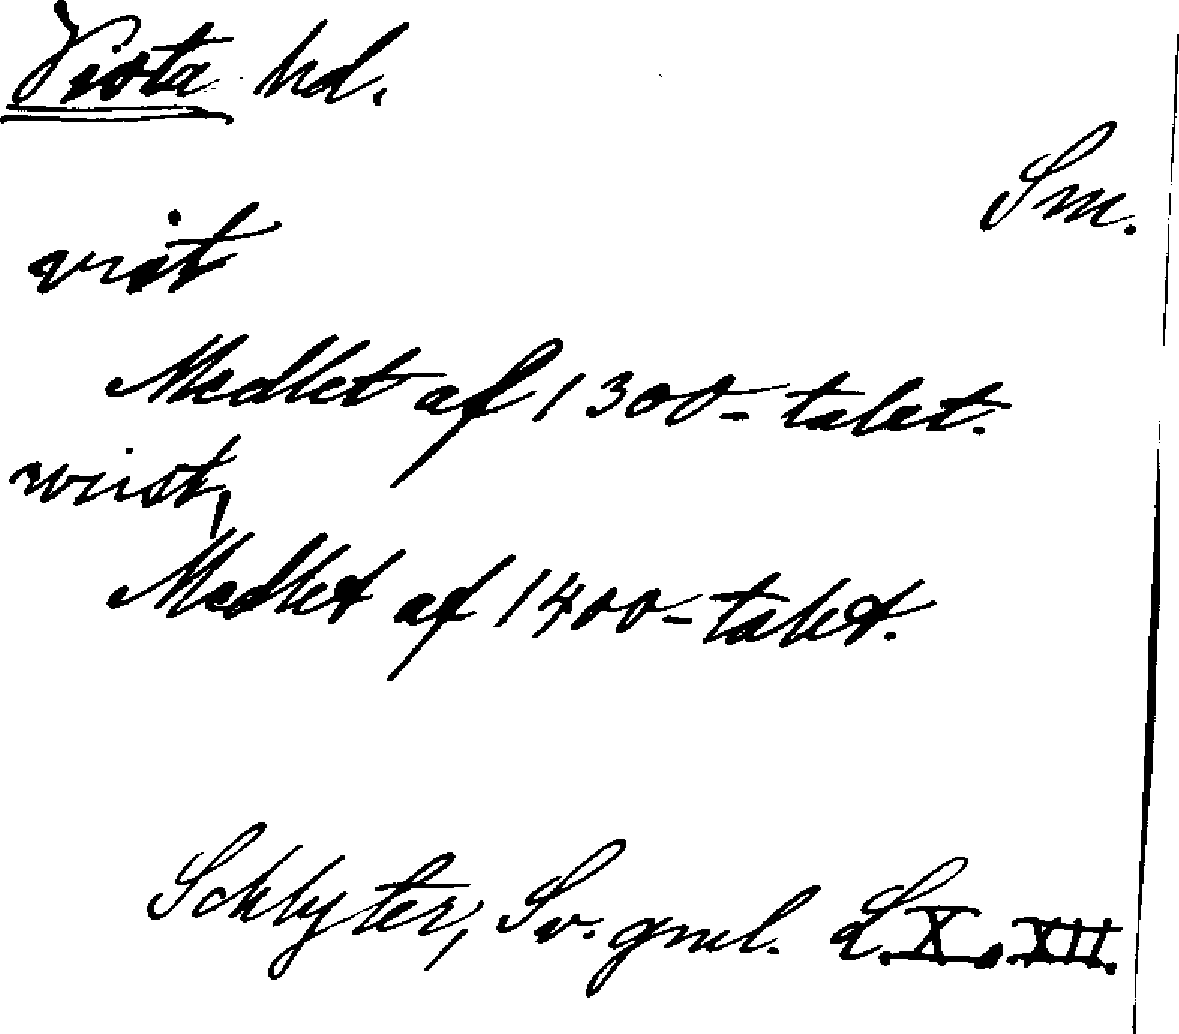 Vista hd.
Sm.
vist
Medlet af 1300-talet.
wiist,
Medlet af 1400-talet.
Schlyter, Sv. gml. L. X o. XII.